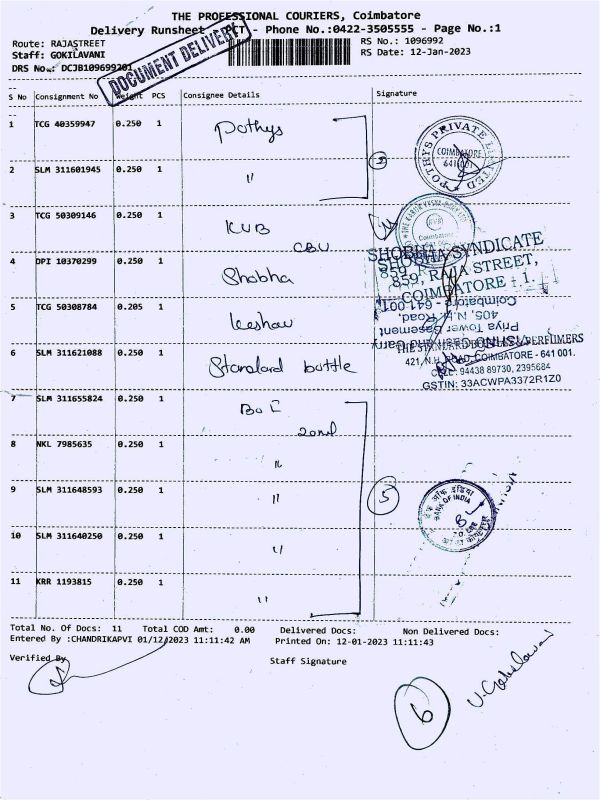 THE PROFESSIONAL COURIERS, Coimbatore
Delivery Runsheet PCT - Phone No.:0422-3505555 - Page No.:1
Route: RAJASTREET
RS No.: 1096992
Staff: GOKILAVANI
RS Date: 12-Jan-2023
DRS No.: DCJB109699201
DOCUMENT DELIVERY
S No Consignment No Weight PCS Consignee Details Signature
1 TCG 40359947 0.250 1 Pothys
2 SLM 311601945 0.250 1 "
POTHYS PRIVATE LIMITED
COIMBATORE
641 001
3 TCG 50309146 0.250 1 KVB
CBU
4 DPI 10370299 0.250 1 Shobha
SHOBHA SYNDICATE
859, RAJA STREET,
COIMBATORE - 1.
5 TCG 50308784 0.205 1 Keshav
Cash and Carry
Priya Tower Basement
405, N.H. Road,
Coimbatore - 641 001
6 SLM 311621088 0.250 1 Standard bottle
THE STANDARD BOTTLES & PERFUMERS
421, N.H. ROAD, COIMBATORE - 641 001.
CELL: 94438 89730, 2395684
GSTIN: 33ACWPA3372R1Z0
7 SLM 311655824 0.250 1 BOI
8 NKL 7985635 0.250 1 "
9 SLM 311648593 0.250 1 "
5
BANK OF INDIA
10 SLM 311640250 0.250 1 "
11 KRR 1193815 0.250 1 "
Total No. Of Docs: 11 Total COD Amt: 0.00 Delivered Docs: Non Delivered Docs:
Entered By :CHANDRIKAPVI 01/12/2023 11:11:42 AM Printed On: 12-01-2023 11:11:43
Verified By
Staff Signature
6